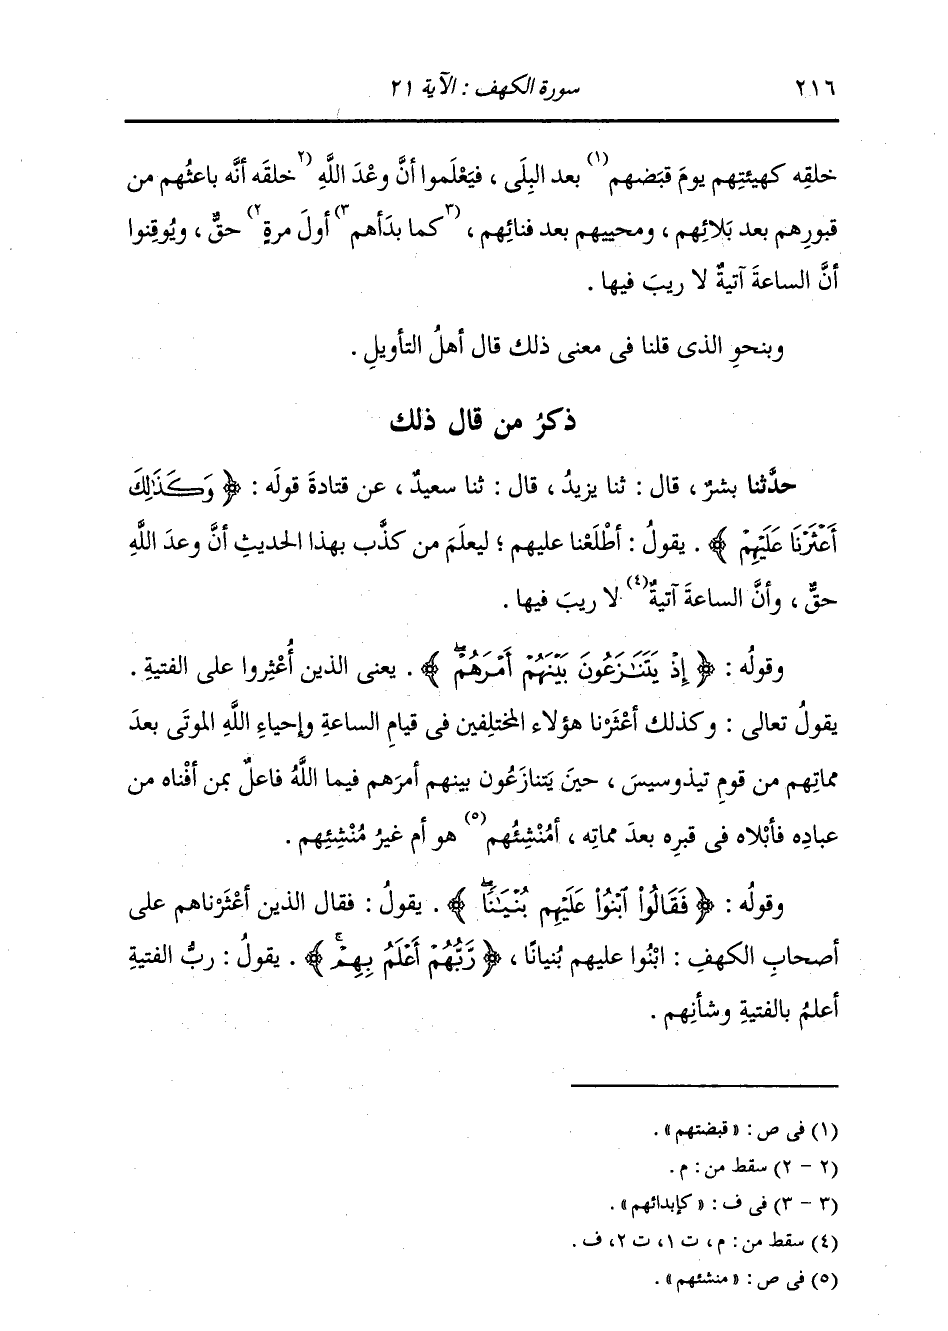 ٢١٦ سورة الكهف : الآية ٢١
خلقِه كهيئتِهم يومَ قبَضهم(١) بعد البِلَى ، فيَعْلَموا أنَّ وعْدَ اللَّهِ (٢خلقَه أنَّه باعثُهم من
قبورِهم بعد بَلائِهم ، ومحييهم بعد فنائِهم ، (٣كما بدَأهم٣) أولَ مرةٍ٢) حقٌّ ، ويُوقِنوا
أنَّ الساعةَ آتيةٌ لا ريبَ فيها .
وبنحوِ الذى قلنا فى معنى ذلك قال أهلُ التأويلِ .
ذكرُ من قال ذلك
حدَّثنا بشرٌ ، قال : ثنا يزيدُ ، قال : ثنا سعيدٌ ، عن قتادةَ قولَه : ﴿ وَكَذَٰلِكَ
أَعْثَرْنَا عَلَيْهِمْ ﴾ . يقولُ : أطْلَعْنا عليهم ؛ ليعلَمَ من كذَّب بهذا الحديثِ أنَّ وعدَ اللَّهِ
حقٌّ ، وأنَّ الساعةَ آتيةٌ(٤) لا ريبَ فيها .
وقولُه : ﴿ إِذْ يَتَنَٰزَعُونَ بَيْنَهُمْ أَمْرَهُمْۖ ﴾ . يعنى الذين أُعْثِروا على الفتيةِ .
يقولُ تعالى : وكذلك أعْثَرْنا هؤلاء المختلِفين فى قيامِ الساعةِ وإحياءِ اللَّهِ الموتَى بعدَ
مماتِهم من قومِ تيذوسيسَ ، حينَ يَتنازَعُون بينهم أمرَهم فيما اللَّهُ فاعلٌ بمن أفْناه من
عبادِه فأبْلاه فى قبرِه بعدَ مماتِه ، أمُنْشِئُهم(٥) هو أم غيرُ مُنْشِئِهم .
وقولُه : ﴿ فَقَالُوا۟ ٱبْنُوا۟ عَلَيْهِم بُنْيَٰنًاۖ ﴾ . يقولُ : فقال الذين أعْثَرْناهم على
أصحابِ الكهفِ : ابْنُوا عليهم بُنيانًا ، ﴿ رَّبُّهُمْ أَعْلَمُ بِهِمْۚ ﴾ . يقولُ : ربُّ الفتيةِ
أعلمُ بالفتيةِ وشأنِهم .
(١) فى ص : « قبضتهم » .
(٢ - ٢) سقط من : م .
(٣ - ٣) فى ف : « كإبدائهم » .
(٤) سقط من : م ، ت ١، ت ٢، ف .
(٥) فى ص : « منشئهم » .